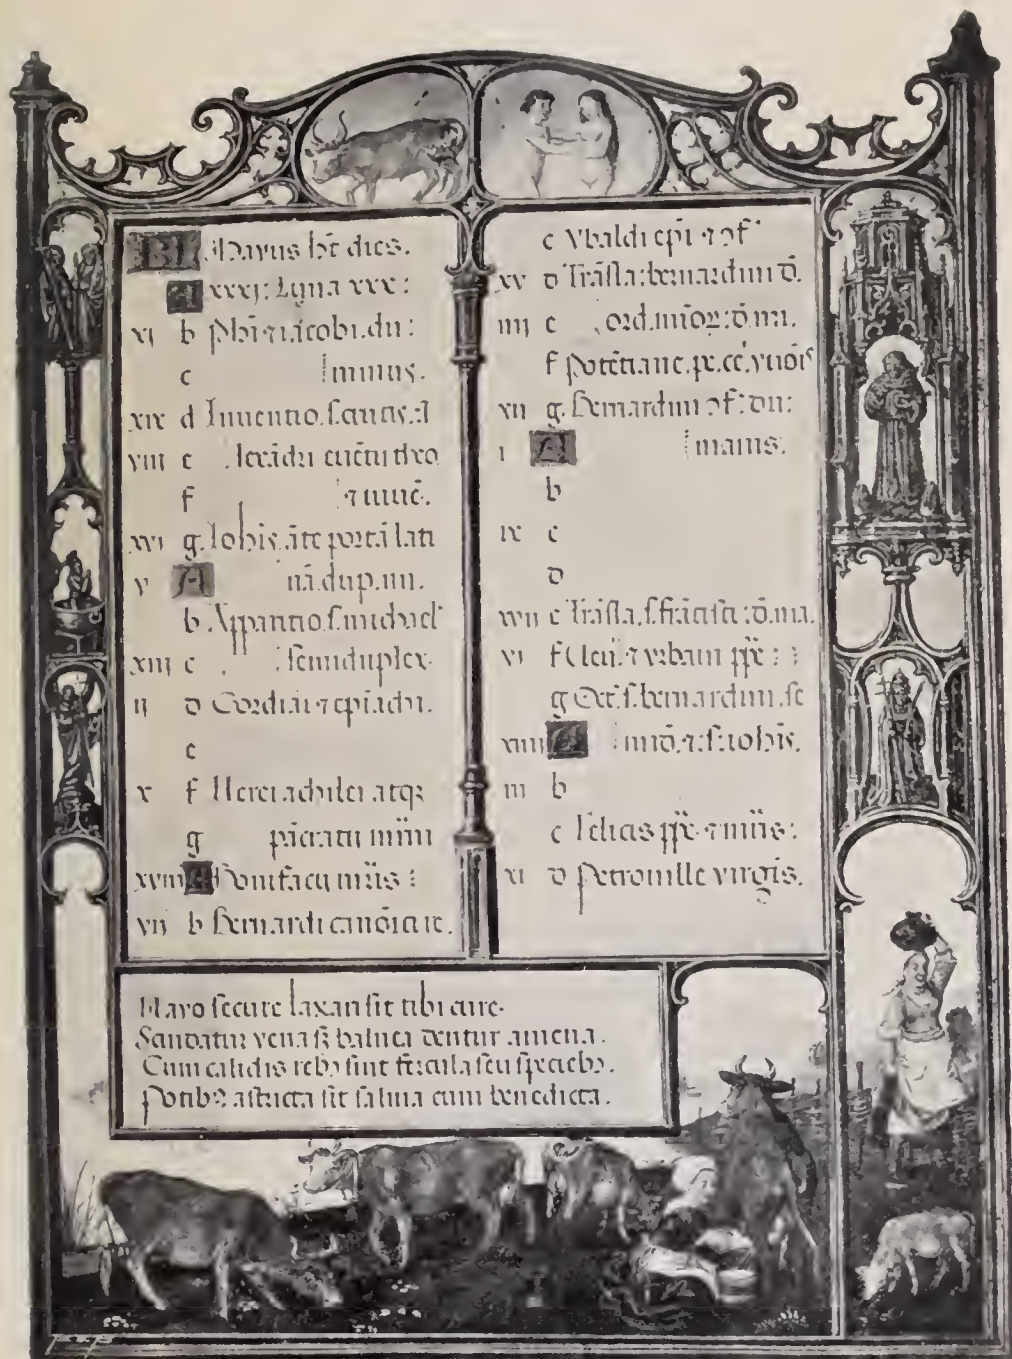 KL Mayus ht dies.
A xxxj: Luna xxx:
xj b Phi ⁊ iacobi. du:
c minus.
xix d Inuentio. s. crucis. a
viii e lexādri euētii
f
xvi g. Iohis. āte portā lati
v A nā. dup. mi.
b Apparitio. s. michael
xiij e semiduplex.
ij d Gordiai ⁊ epiachi.
e
x f Nerei achilei atq3
g pācratii
xviii A Bonifacij mr̄is:
vij b Bernardi
c Vbaldi epi ⁊ ɔf
xv d Trāsla: bernardini d̄.
iiij e ord. mīoꝝ: d̄. mi.
f Potētiane.
xij g. Bernardini ɔf: du:
i A maius.
b
ix c
d
xvij e Trāsla. s. frācisci: d̄. ma.
vj f ⁊ vrbani pp̄:
g Oct. s. bernardini. se
xiiij A
iij b
c Felicis pp̄ ⁊ mr̄is:
xi d Petronille virgis.
Mayo secure laxari sit tibi cure.
Scindatur vena s3 balnea dentur amena.
Cum calidis rebɔ sint fercula seu speciebɔ.
Potibɔ astricta sit saluia cum benedicta.